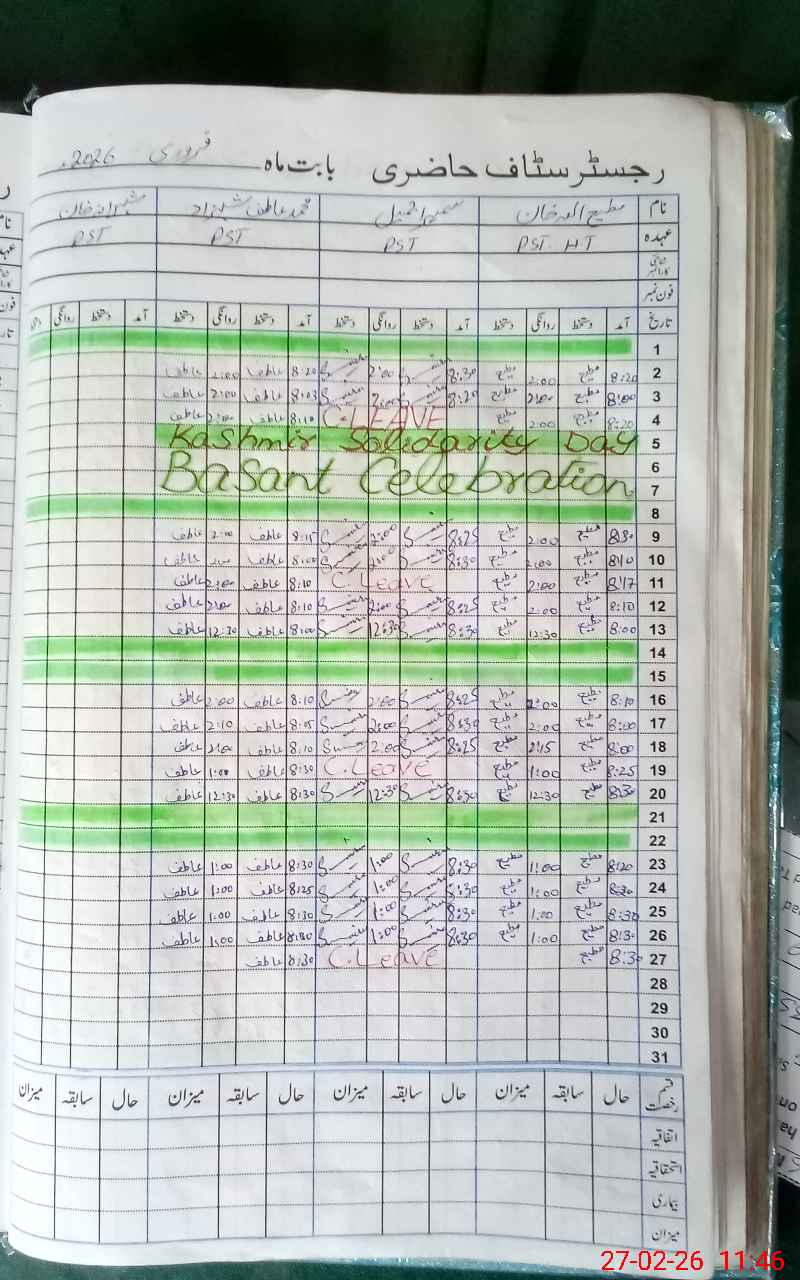 رجسٹر سٹاف حاضری بابت ماہ فروری 2026ء
نام مطیع اللہ خان سمیرا جمیل محمد عاطف شہزاد خان
عہدہ PST HT PST PST PST
فون نمبر
تاریخ آمد دستخط روانگی دستخط آمد دستخط روانگی دستخط آمد دستخط روانگی دستخط آمد دستخط روانگی
1
2 8:20 مطیع 2:00 مطیع 8:30 2:00 8:20 عاطف 2:00 عاطف
3 8:00 مطیع 2:00 مطیع 8:20 2:00 8:03 عاطف 2:00 عاطف
4 8:20 مطیع 2:00 مطیع C.LEAVE 8:10 عاطف 2:00 عاطف
5 Kashmir Solidarity Day
6
7 Basant Celebration
8
9 8:30 مطیع 2:00 مطیع 8:25 2:00 8:15 عاطف 2:00 عاطف
10 8:10 مطیع 2:00 مطیع 8:30 2:00 8:00 عاطف 2:00 عاطف
11 8:17 مطیع 2:00 مطیع C.Leave 8:10 عاطف 2:00 عاطف
12 8:10 مطیع 2:00 مطیع 8:25 2:00 8:10 عاطف 2:00 عاطف
13 8:00 مطیع 12:30 مطیع 8:30 12:30 8:00 عاطف 12:30 عاطف
14
15
16 8:10 مطیع 2:00 مطیع 8:25 2:00 8:10 عاطف 2:00 عاطف
17 8:00 مطیع 2:00 مطیع 8:30 2:00 8:05 عاطف 2:10 عاطف
18 8:00 مطیع 2:15 مطیع 8:25 2:00 8:10 عاطف 2:00 عاطف
19 8:25 مطیع 1:00 مطیع C.Leave 8:30 عاطف 1:00 عاطف
20 8:30 مطیع 12:30 مطیع 8:30 12:30 8:30 عاطف 12:30 عاطف
21
22
23 8:20 مطیع 1:00 مطیع 8:30 1:00 8:30 عاطف 1:00 عاطف
24 8:30 مطیع 1:00 مطیع 8:30 1:00 8:25 عاطف 1:00 عاطف
25 8:30 مطیع 1:00 مطیع 8:30 1:00 8:30 عاطف 1:00 عاطف
26 8:30 مطیع 1:00 مطیع 8:30 1:00 8:30 عاطف 1:00 عاطف
27 8:30 مطیع C.Leave 8:30 عاطف
28
29
30
31
قسم رخصت حال سابقہ میزان حال سابقہ میزان حال سابقہ میزان حال سابقہ میزان
اتفاقیہ
استحقاقیہ
بیماری
میزان
27-02-26 11:46